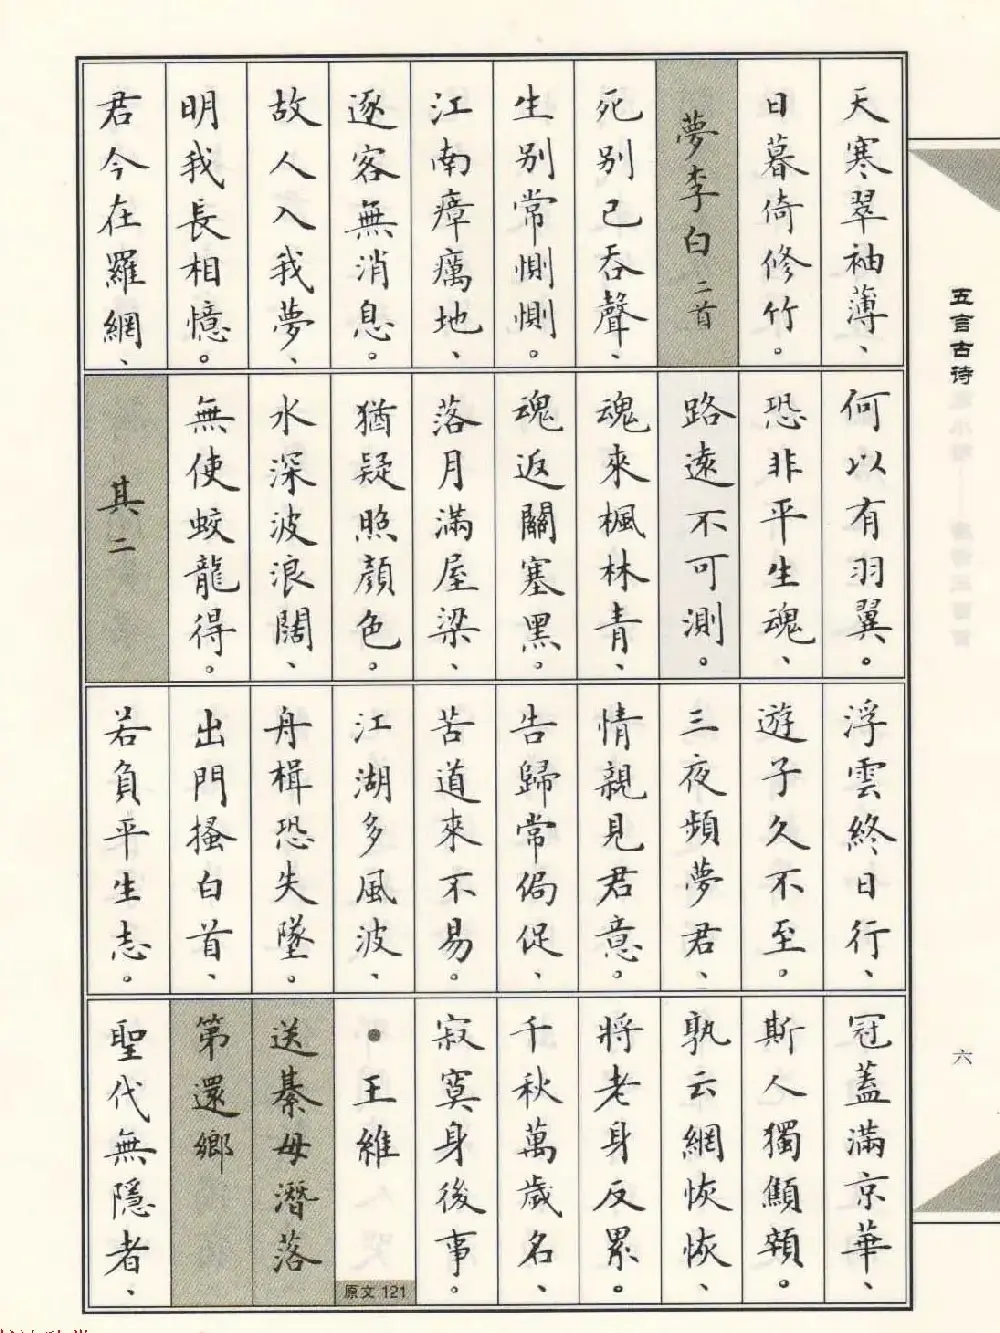 天寒翠袖薄、
日暮倚修竹。
夢李白 二首
死别已吞聲、
生别常惻惻。
江南瘴癘地、
逐客無消息。
故人入我夢、
明我長相憶。
君今在羅網、
何以有羽翼。
恐非平生魂、
路遠不可測。
魂來楓林青、
魂返關塞黑。
落月滿屋梁、
猶疑照顏色。
水深波浪闊、
無使蛟龍得。
其二
浮雲終日行、
遊子久不至。
三夜頻夢君、
情親見君意。
告歸常侷促、
苦道來不易。
江湖多風波、
舟楫恐失墜。
出門搔白首、
若負平生志。
冠蓋滿京華、
斯人獨顦顇。
孰云網恢恢、
將老身反累。
千秋萬歲名、
寂寞身後事。
●王維
原文 121
送綦毋潛落
第還鄉
聖代無隱者、
五言古诗
六